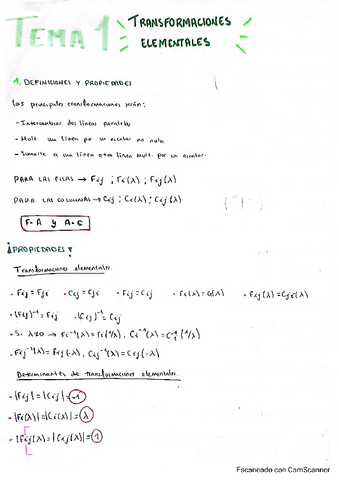 TEMA 1 TRANSFORMACIONES
ELEMENTALES
1. DEFINICIONES Y PROPIEDADES
Las principales transformaciones serán:
- Intercambiar dos líneas paralelas
- Mult. una línea por un escalar no nulo
- Sumarle a una línea otra línea mult. por un escalar.
PARA LAS FILAS → Fij ; Fi(λ) ; Fij(λ)
PARA LAS COLUMNAS → Cij ; Ci(λ) ; Cij(λ)
F·A y A·C
¡PROPIEDADES!
Transformaciones elementales.
• Fij = Fji • Cij = Cji • Fij = Cij • Fi(λ) = Ci(λ) • Fij(λ) = Cji(λ)
• (Fij)⁻¹ = Fij · (Cij)⁻¹ = Cij
• Si λ≠0 → Fi⁻¹(λ) = Fi(1/λ), Ci⁻¹(λ) = Ci(1/λ)
• Fij⁻¹(λ) = Fij(-λ), Cij⁻¹(λ) = Cij(-λ)
Determinantes de transformaciones elementales.
• |Fij| = |Cij| = -1
• |Fi(λ)| = |Ci(λ)| = λ
• |Fij(λ)| = |Cij(λ)| = 1
Escaneado con CamScanner